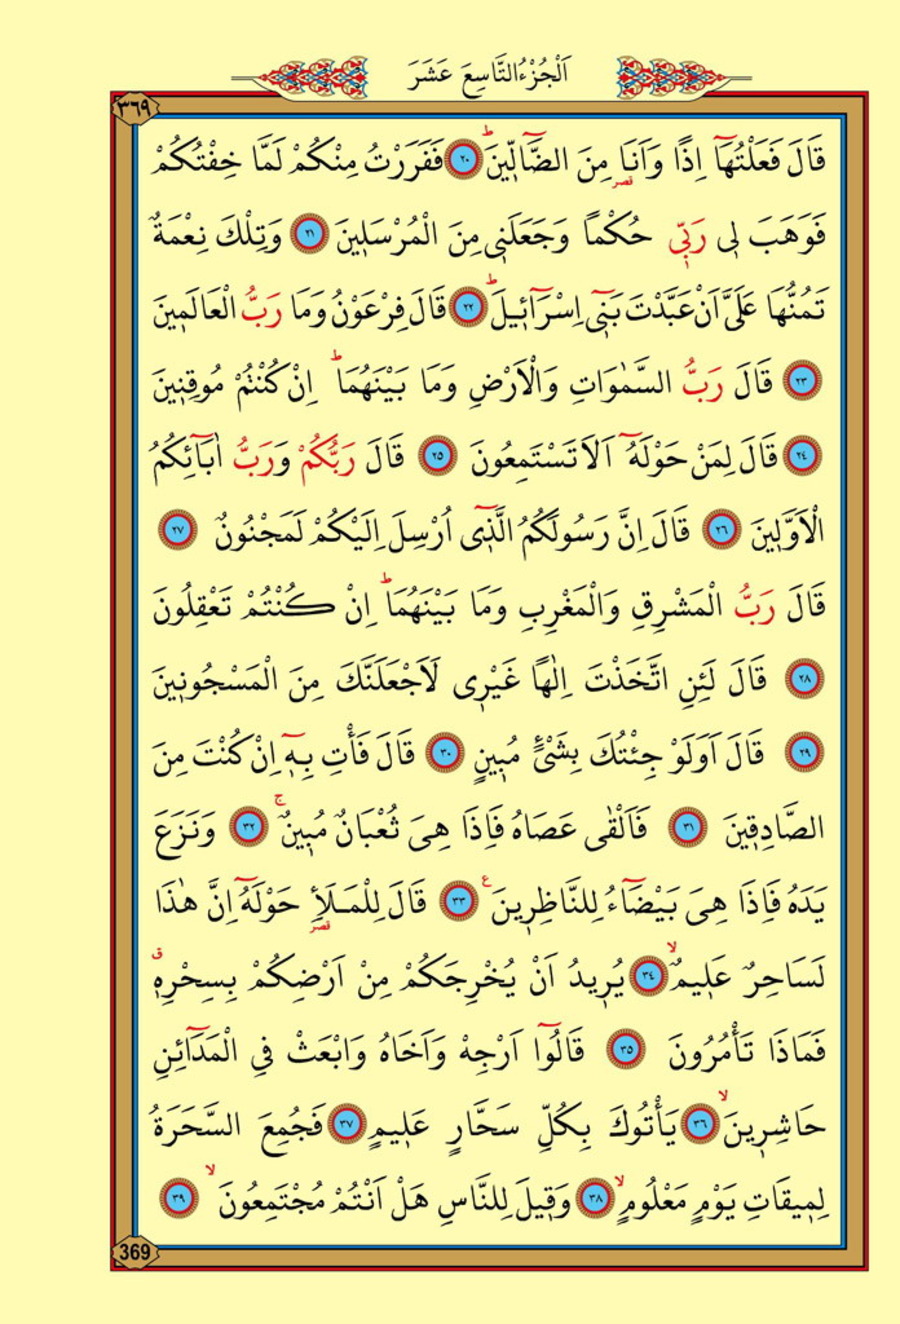 اَلْجُزْءُ التَّاسِعَ عَشَرَ
٣٦٩
قَالَ فَعَلْتُهَٓا اِذًا وَاَنَا۬ مِنَ الضَّٓالّ۪ينَۜ ﴿٢٠﴾ فَفَرَرْتُ مِنْكُمْ لَمَّا خِفْتُكُمْ
قصر
فَوَهَبَ ل۪ى رَبّ۪ى حُكْمًا وَجَعَلَن۪ى مِنَ الْمُرْسَل۪ينَ ﴿٢١﴾ وَتِلْكَ نِعْمَةٌ
تَمُنُّهَا عَلَىَّ اَنْ عَبَّدْتَ بَن۪ٓى اِسْرَٓائ۪يلَۜ ﴿٢٢﴾ قَالَ فِرْعَوْنُ وَمَا رَبُّ الْعَالَم۪ينَ
﴿٢٣﴾ قَالَ رَبُّ السَّمٰوَاتِ وَالْاَرْضِ وَمَا بَيْنَهُمَاۜ اِنْ كُنْتُمْ مُوقِن۪ينَ
﴿٢٤﴾ قَالَ لِمَنْ حَوْلَهُٓ اَلَا تَسْتَمِعُونَ ﴿٢٥﴾ قَالَ رَبُّكُمْ وَرَبُّ اٰبَٓائِكُمُ
الْاَوَّل۪ينَ ﴿٢٦﴾ قَالَ اِنَّ رَسُولَكُمُ الَّذ۪ٓى اُرْسِلَ اِلَيْكُمْ لَمَجْنُونٌ ﴿٢٧﴾
قَالَ رَبُّ الْمَشْرِقِ وَالْمَغْرِبِ وَمَا بَيْنَهُمَاۜ اِنْ كُنْتُمْ تَعْقِلُونَ
﴿٢٨﴾ قَالَ لَئِنِ اتَّخَذْتَ اِلٰهًا غَيْر۪ى لَاَجْعَلَنَّكَ مِنَ الْمَسْجُون۪ينَ
﴿٢٩﴾ قَالَ اَوَلَوْ جِئْتُكَ بِشَىْءٍ مُب۪ينٍ ﴿٣٠﴾ قَالَ فَأْتِ بِه۪ٓ اِنْ كُنْتَ مِنَ
الصَّادِق۪ينَ ﴿٣١﴾ فَاَلْقٰى عَصَاهُ فَاِذَا هِىَ ثُعْبَانٌ مُب۪ينٌۚ ﴿٣٢﴾ وَنَزَعَ
يَدَهُ فَاِذَا هِىَ بَيْضَٓاءُ لِلنَّاظِر۪ينَ ع ﴿٣٣﴾ قَالَ لِلْمَلَأِ حَوْلَهُٓ اِنَّ هٰذَا
قصر
لَسَاحِرٌ عَل۪يمٌۙ ﴿٣٤﴾ يُر۪يدُ اَنْ يُخْرِجَكُمْ مِنْ اَرْضِكُمْ بِسِحْرِه۪ۗ
فَمَاذَا تَأْمُرُونَ ﴿٣٥﴾ قَالُٓوا اَرْجِهْ وَاَخَاهُ وَابْعَثْ فِى الْمَدَٓائِنِ
حَاشِر۪ينَۙ ﴿٣٦﴾ يَأْتُوكَ بِكُلِّ سَحَّارٍ عَل۪يمٍ ﴿٣٧﴾ فَجُمِعَ السَّحَرَةُ
لِم۪يقَاتِ يَوْمٍ مَعْلُومٍۙ ﴿٣٨﴾ وَق۪يلَ لِلنَّاسِ هَلْ اَنْتُمْ مُجْتَمِعُونَۙ ﴿٣٩﴾
369